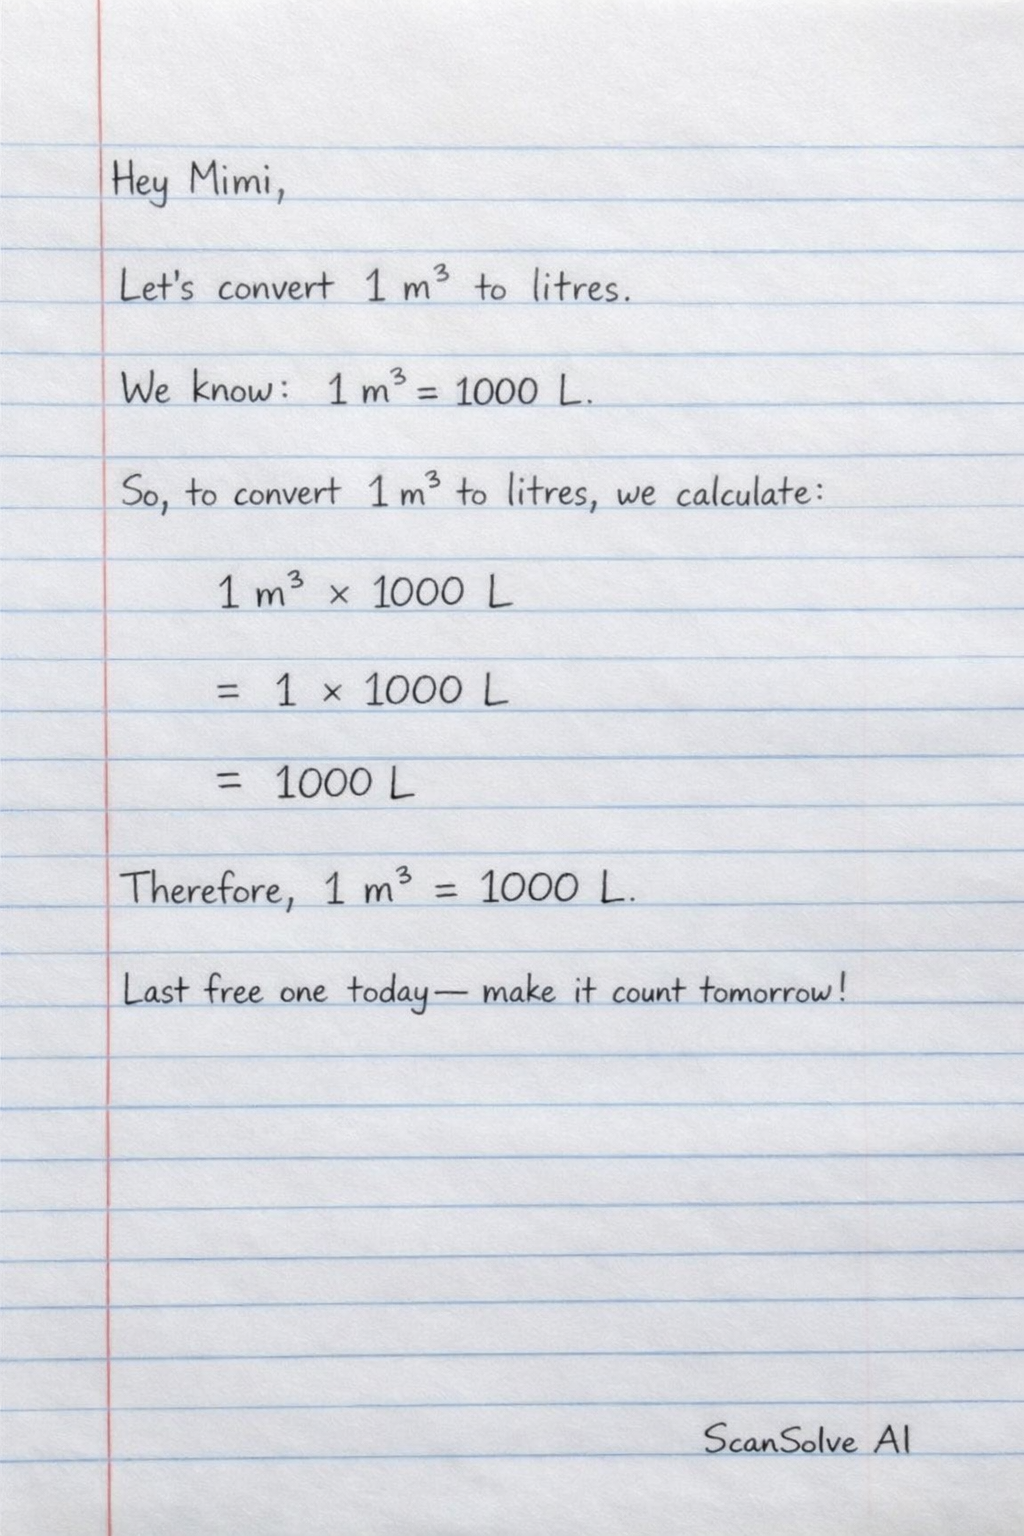 Hey Mimi,
Let's convert 1 m³ to litres.
We know: 1 m³ = 1000 L.
So, to convert 1 m³ to litres, we calculate:
1 m³ × 1000 L
= 1 × 1000 L
= 1000 L
Therefore, 1 m³ = 1000 L.
Last free one today— make it count tomorrow!
ScanSolve AI